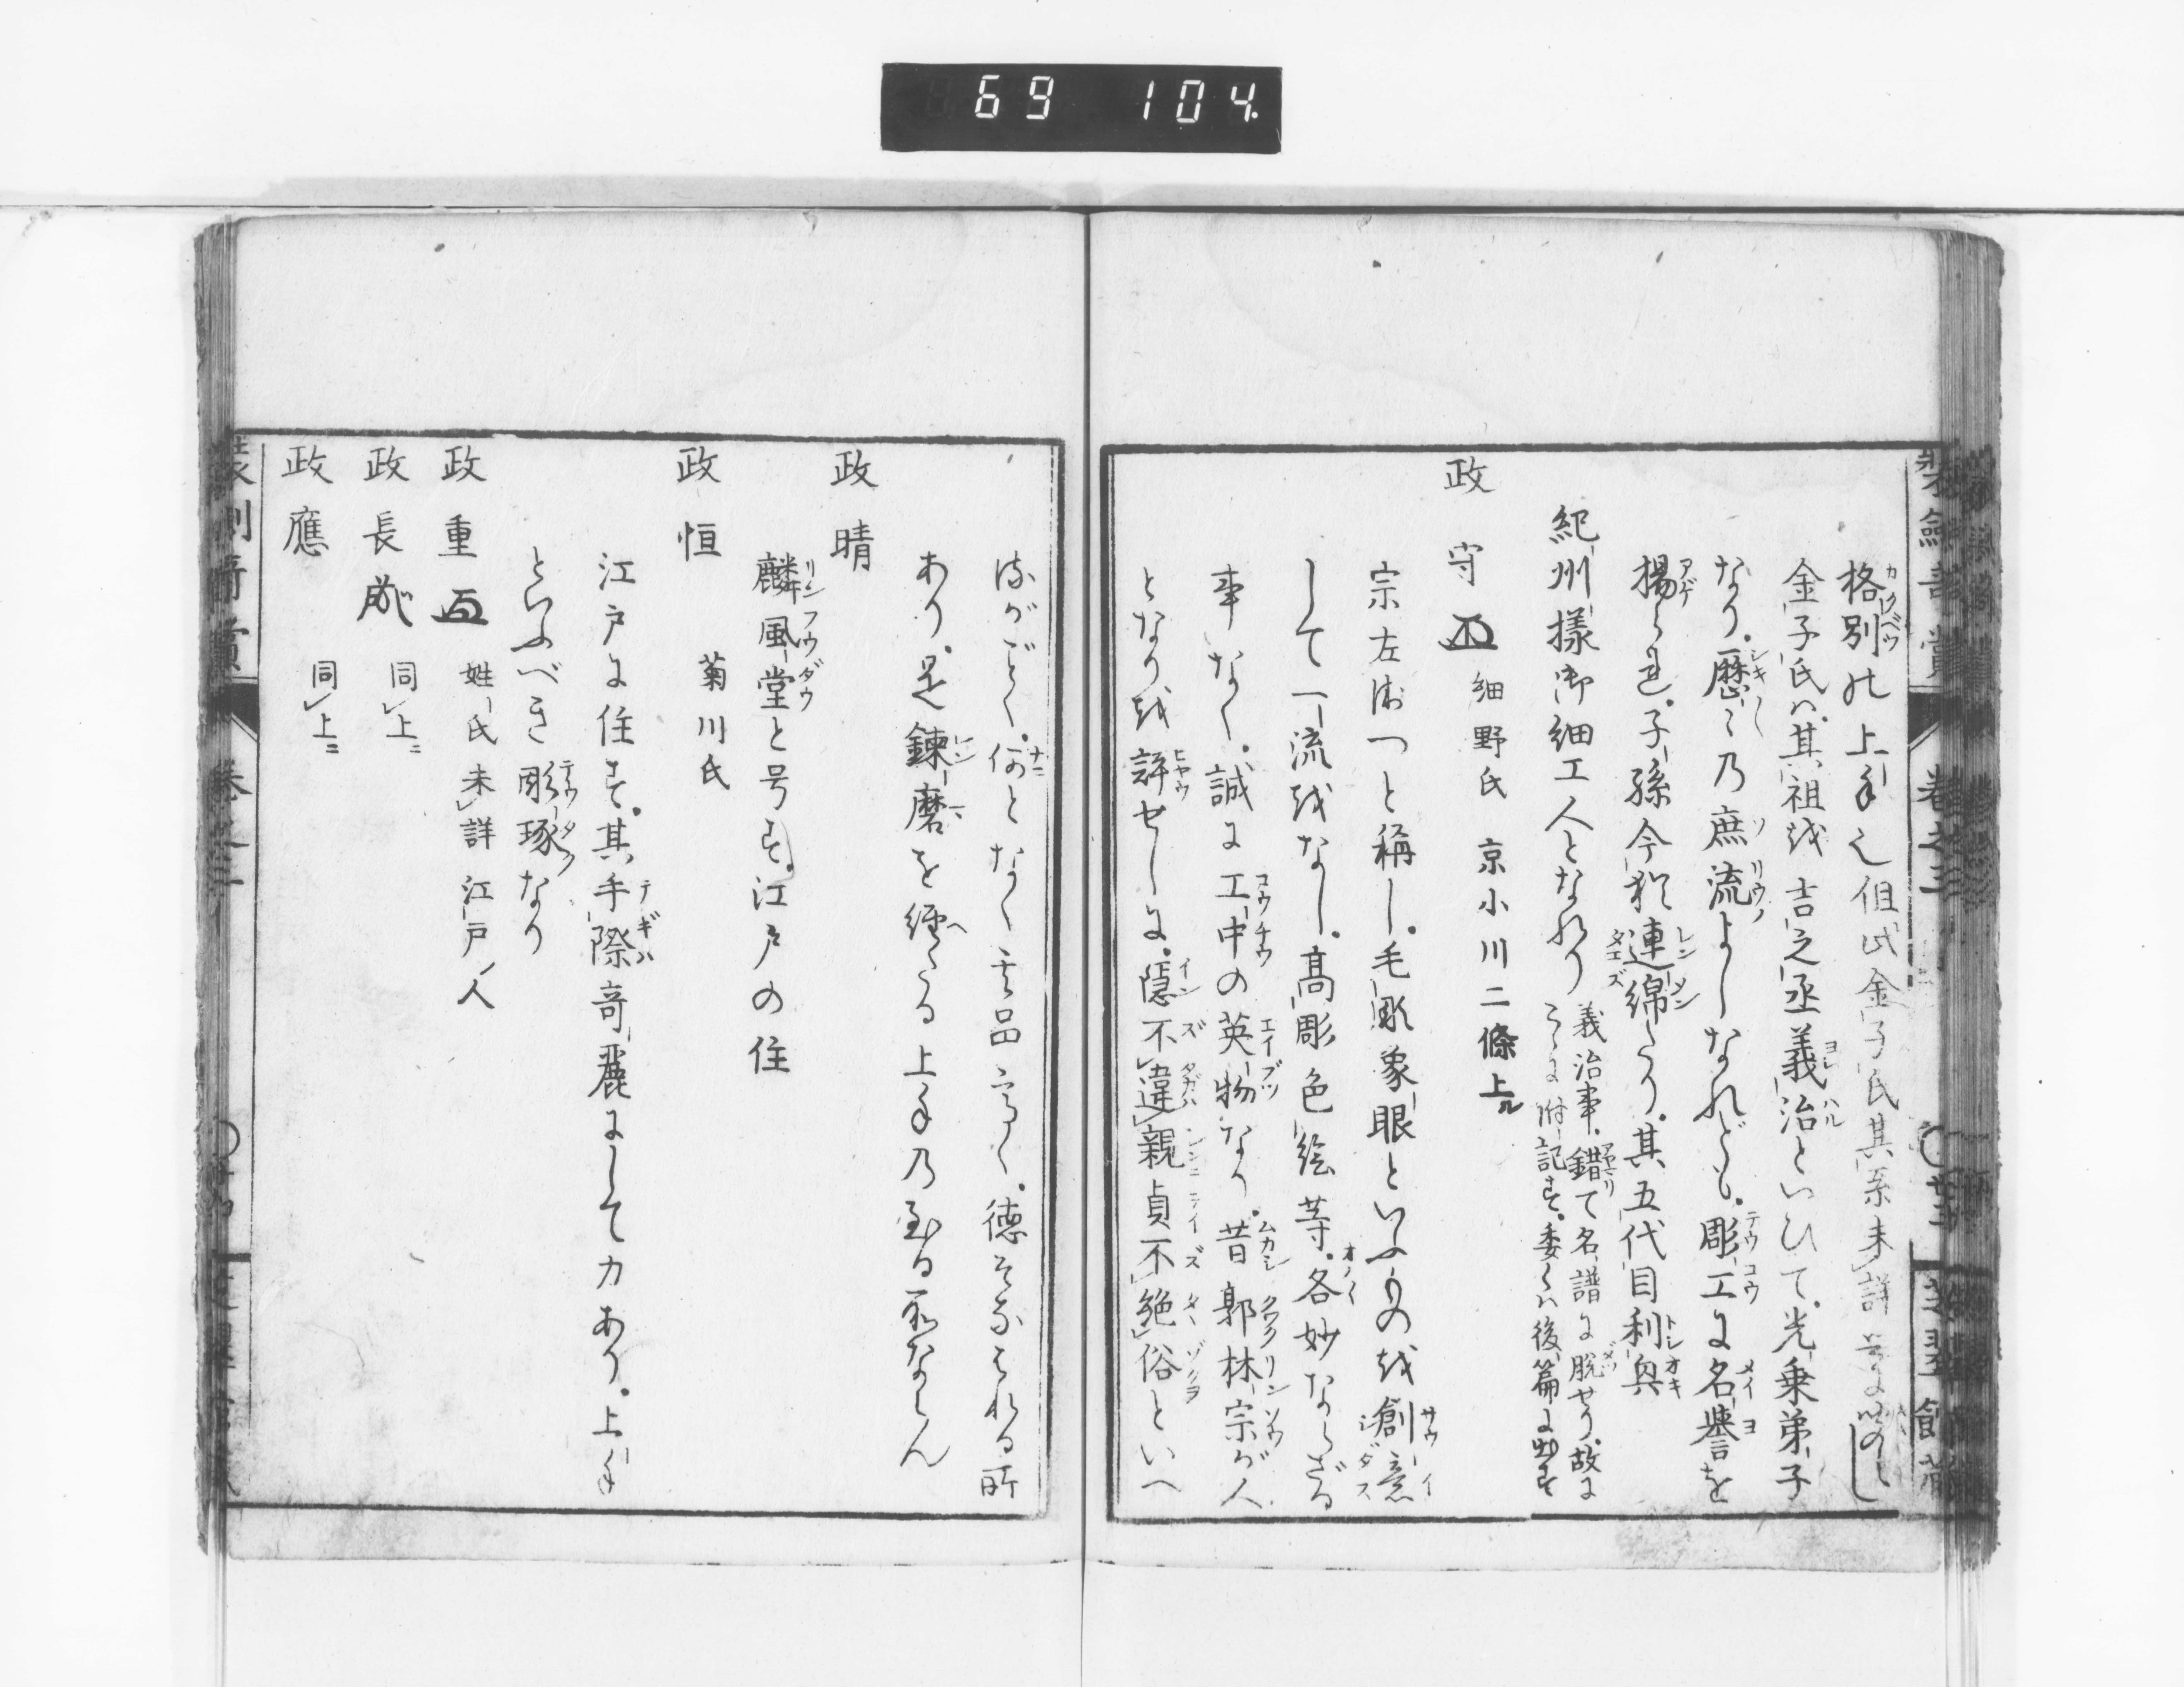 69 104.
格別の上手也但此金子氏其系未詳
金子氏ハ其祖越吉之丞義治といひて光乗弟子
なり歴〻乃庶流よしなれども彫工に名誉を
揚られ子孫今猶連綿たり其五代目利興
紀州様御細工人となれり
義治事錯て名譜に脱せり故に
こゝに附記す委くハ後篇に出す
政守 細野氏 京小川二條上ル
宗左衛つと稱し毛彫象眼といふもの越創意
して一流越なし高彫色絵等各妙ならざる
事なく誠に工中の英物なり昔郭林宗が人
となり越評せしに隠不違親貞不絶俗といへ
るがごとく何となく其品高く徳そなはれる所
あり是錬磨を経たる上手乃至る所ならん
政晴
麟風堂と号す江戸の住
政恒 菊川氏
江戸に住す其手際奇麗にして力あり上手
といふべき彫琢なり
政重 姓氏未詳江戸ノ人
政長 同上ニ
政應 同上ニ